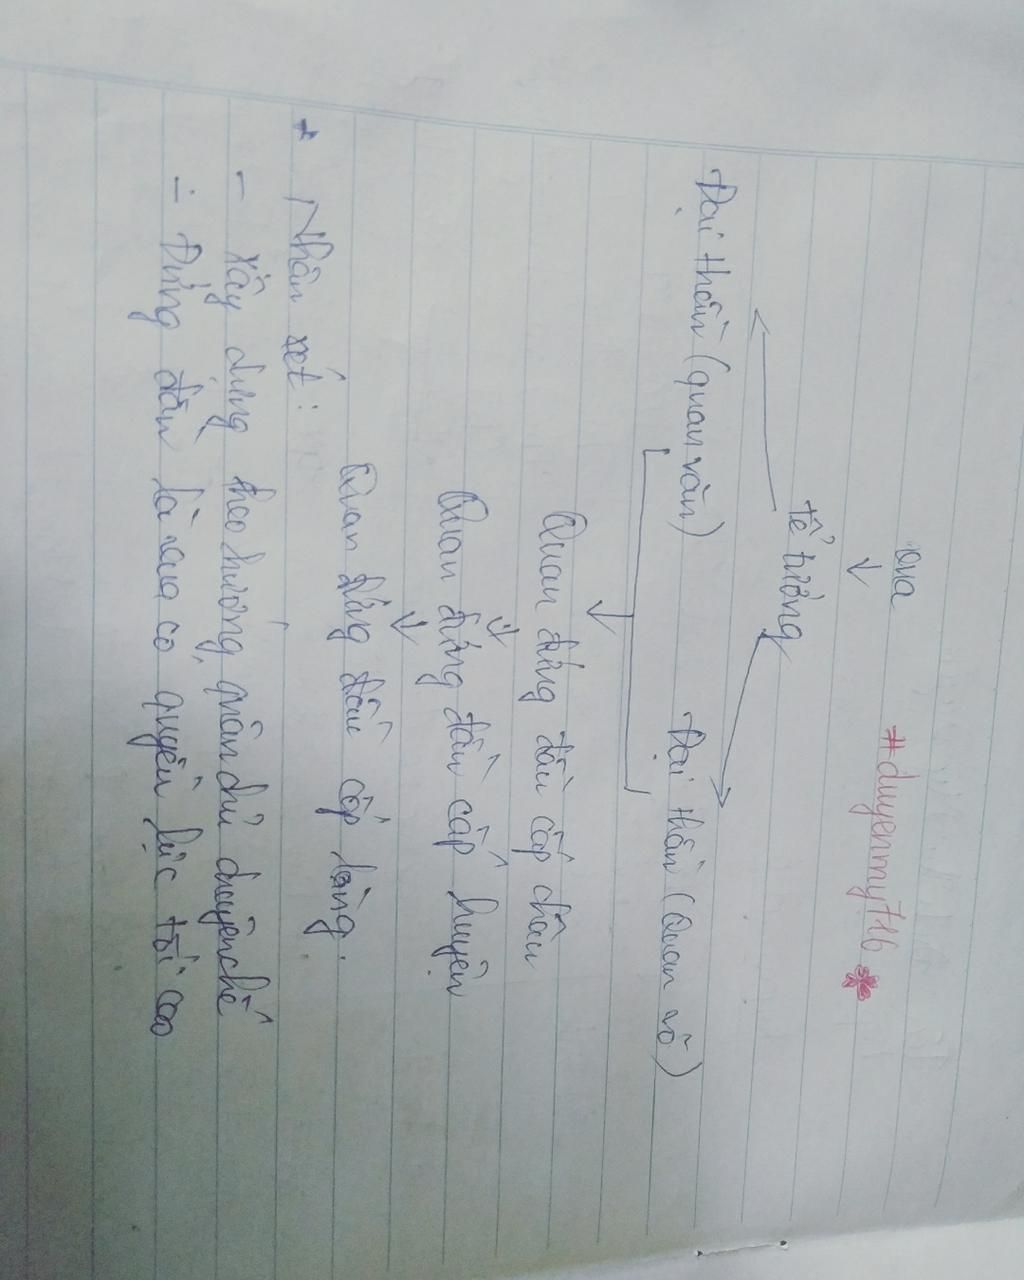 vua
#duyenmy716
tể tướng
Đại thần (quan văn)
Đại thần (Quan võ)
Quan đứng đầu cấp châu
Quan đứng đầu cấp huyện
Quan đứng đầu cấp làng.
* Nhận xét:
- xây dựng theo hướng quân chủ chuyên chế
- Đứng đầu là vua có quyền lực tối cao